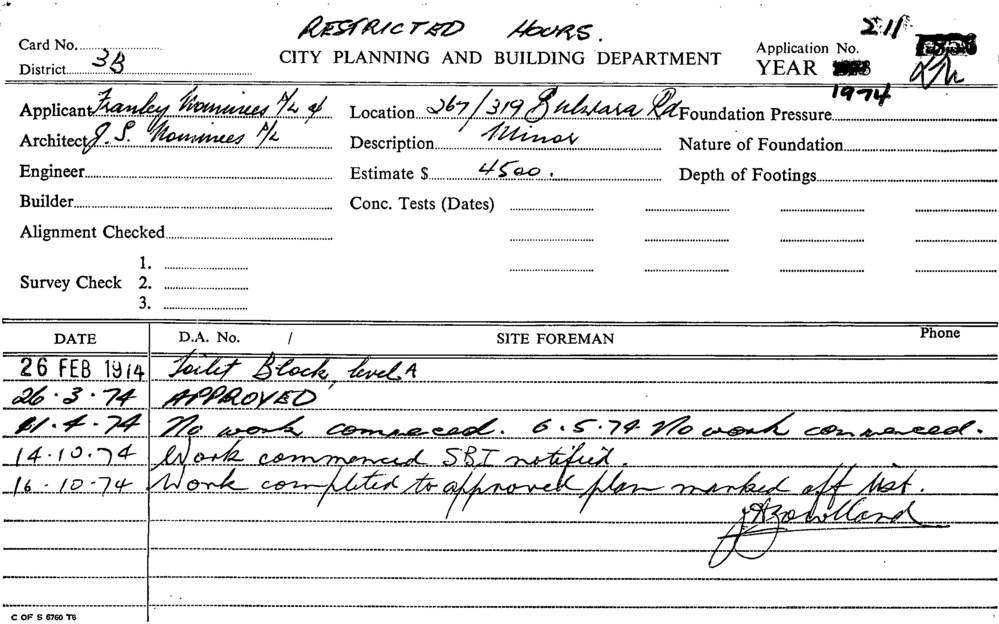 RESTRICTED HOURS.
Card No.
CITY PLANNING AND BUILDING DEPARTMENT
Application No. 211
District 3B
YEAR 1974
Applicant Franley Nominees P/L of
Location 267/319 Bulwara Rd
Foundation Pressure
Architect J. S. Nominees P/L
Description Minor
Nature of Foundation
Engineer
Estimate $ 4500.
Depth of Footings
Builder
Conc. Tests (Dates)
Alignment Checked
Survey Check 1.
2.
3.
DATE D.A. No. / SITE FOREMAN Phone
26 FEB 1974 Toilet Block, level A
26.3.74 APPROVED
11.4.74 No work commenced. 6.5.74 No work commenced.
14.10.74 Work commenced SBI notified.
16.10.74 Work completed to approved plan marked off list.
C OF S 6760 T6